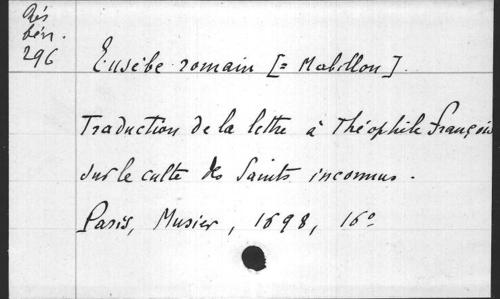 Rés
bén.
296
Eusèbe romain [= Mabillon].
Traduction de la lettre à Théophile françois
sur le culte des Saints inconnus.
Paris, Musier, 1698, 16º